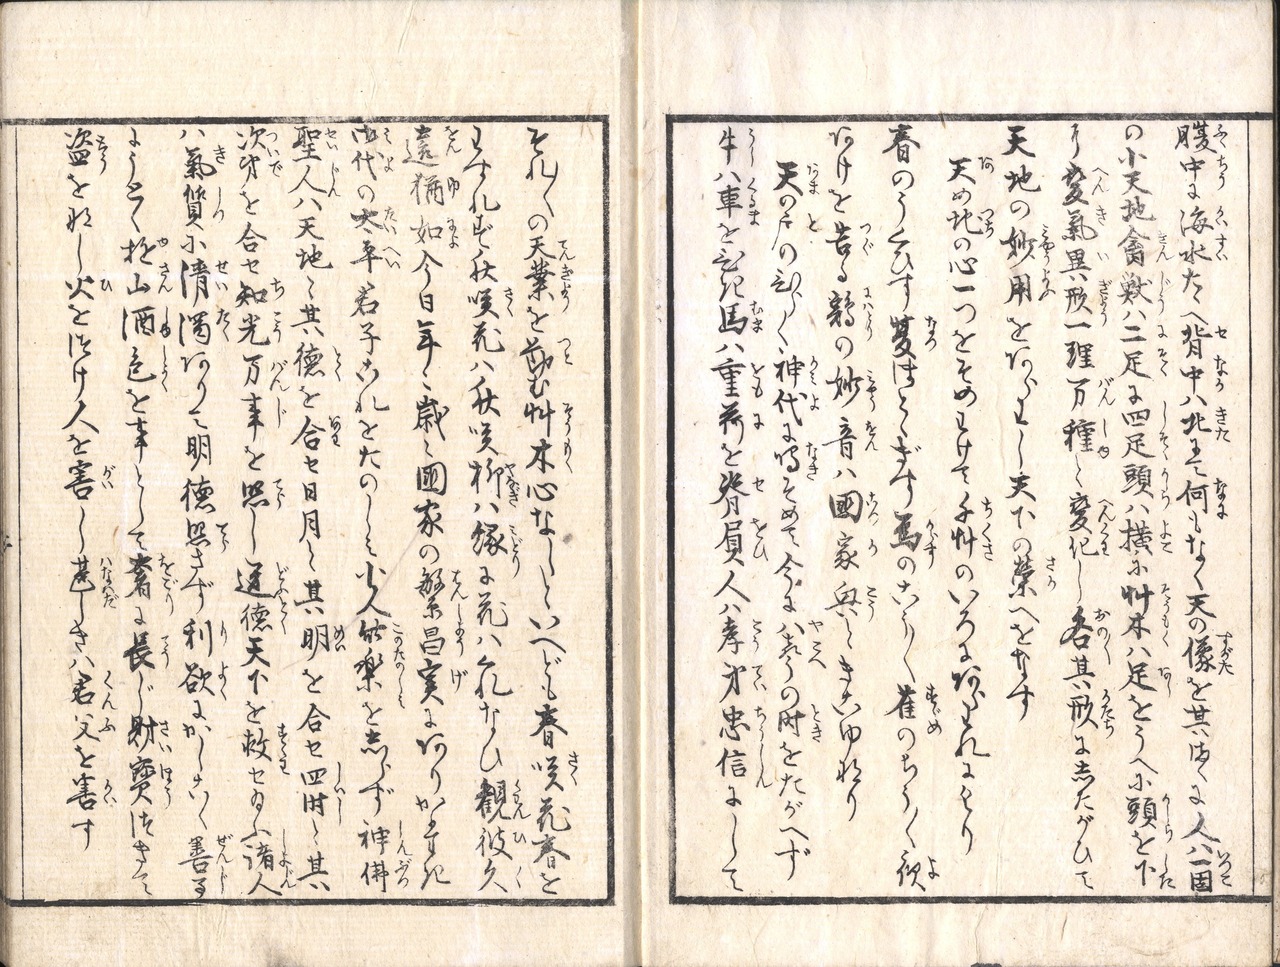 腹中に海水たゝへ背中ハ北にて何もなく天の像を其まゝに人ハ一箇
の小天地禽獣ハ二足に四足頭ハ横に艸木ハ足をうへに頭を下
より変氣異形一理万種と変化し各其形にしたがひて
天地の妙用をあらわし天下の榮へをなす
天地の心一つをそめわけて千艸のいろにあらわれにけり
春のうくひす夏ほとゝぎす烏のこゑ〳〵雀のちう〳〵夜
あけを告る鶏の妙音ハ國家興ときこゆなり
天の戸のひらく神代に鳴そめて今に八声の時をたがへず
牛ハ車をひき馬ハ重荷を脊負人ハ孝弟忠信にして
それ〳〵の天業を勤む艸木心なしといへども春咲花春を
わすれず秋咲花ハ秋咲柳ハ緑に花ハくれなひ観彼久
遠猶如今日年〻歳〻國家の繁昌実にありがたき
御代の太平君子これをたのしミ小人此楽を志らず神佛
聖人ハ天地と其徳を合セ日月と其明を合セ四時と其
次第を合セ知光万事を照し道徳天下を救セ給ふ諸人
ハ氣質に清濁ありて明徳照さず利欲にかしこく善事
にうとく遊山酒色を事として奢に長じ財寳つきて
盗をなし火をつけ人を害し甚しきハ君父を害す